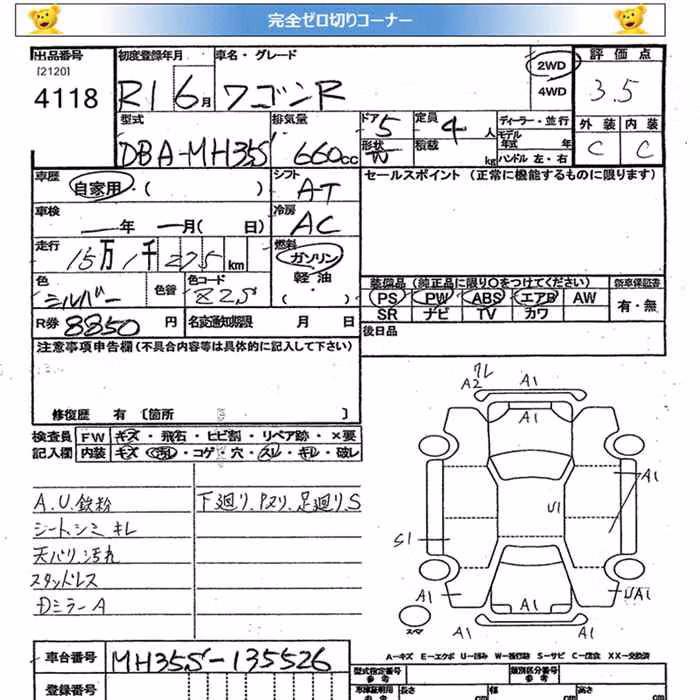 完全ゼロ切りコーナー
出品番号 初度登録年月 車名・グレード 2WD 評価点
[2120]
4118 R1 6月 ワゴンR 4WD 3.5
型式 排気量 ドア 5 定員 4人 ディーラー・並行 外装 内装
DBA-MH35S 660cc 形状 W 積載 kg モデル年式 年 C C
ハンドル 左・右
車歴 自家用・( ) シフト AT セールスポイント (正常に機能するものに限ります)
車検 年 月( 日) 冷房 AC
走行 15万1千275km 燃料 ガソリン
軽油・( )
色 シルバー 色替 色コード Z2S 装備品 (純正品に限り○をつけてください) 新車保証書
PS PW ABS エアB AW 有・無
SR ナビ TV カワ
R券 8850円 名変通知期限 月 日 後日品
注意事項申告欄 (不具合内容等は具体的に記入して下さい)
修復歴 有 [箇所 ]
検査員 FW キズ・飛石・ヒビ割・リペア跡・×要
記入欄 内装 キズ・汚レ・コゲ・穴・スレ・キレ・破レ
A.U.鉄粉 下廻り、Pヌリ、足廻りS
シート、シミ キレ
天バリ、汚れ
スタッドレス
DミラーA
ワレ
A2 A1
A1
A1
U1
S1
A1 A1 UA1
スペア A1 A1
A-キズ E-エクボ U-凹み W-補修跡 S-サビ C-腐食 XX-交換済
車台番号 MH35S-135526
登録番号
型式指定番号 参考 類別区分番号 参考
長さ cm 幅 cm 高さ cm